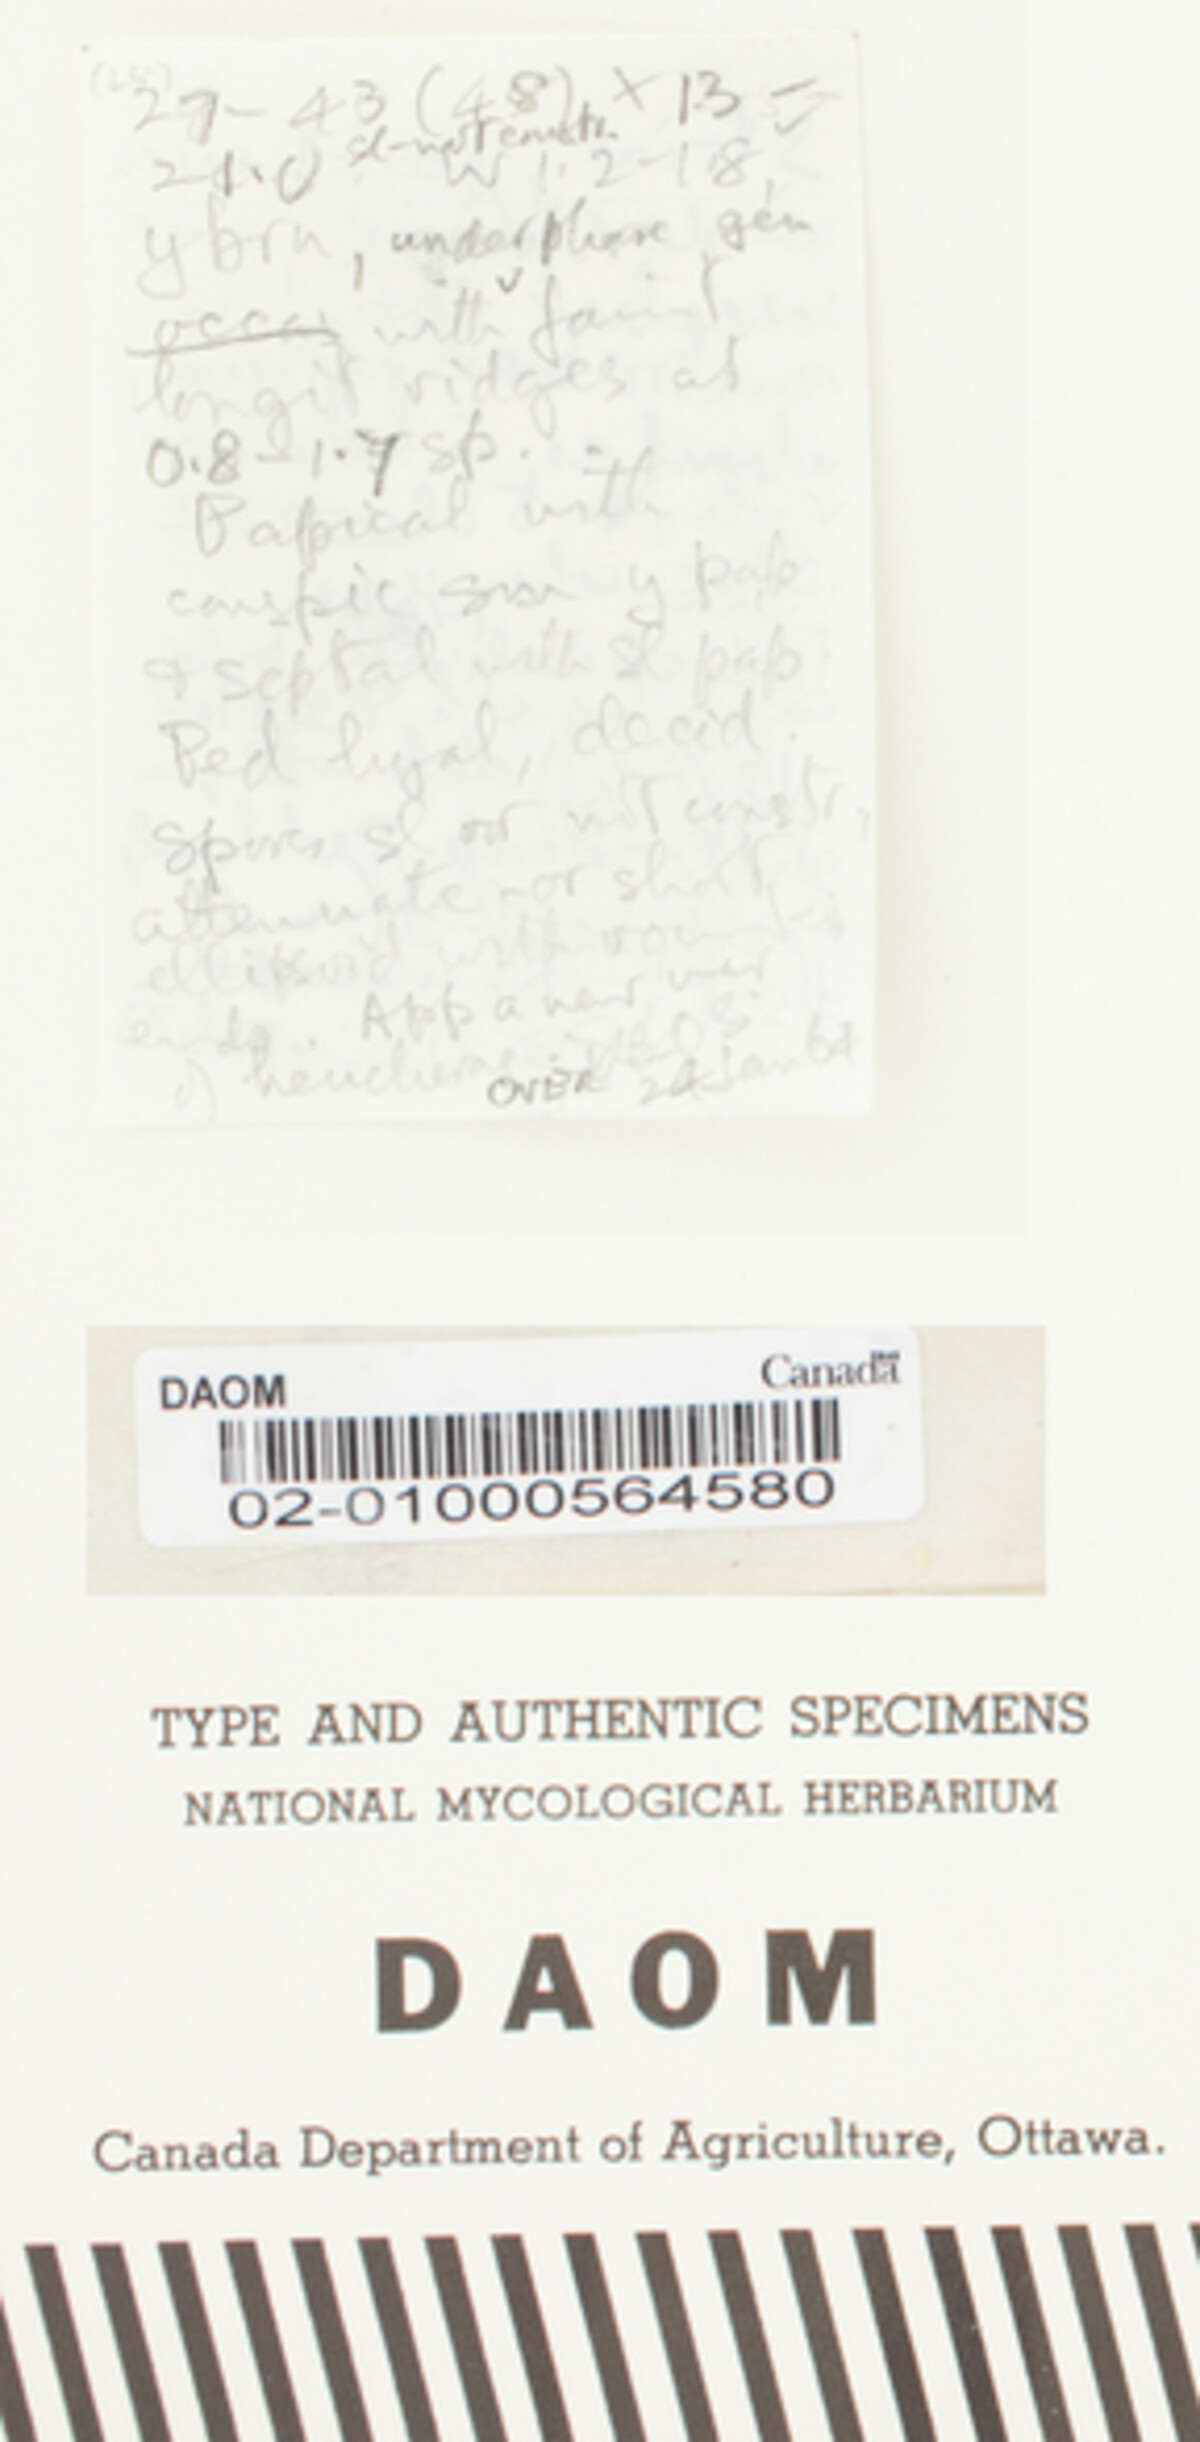 (25) 27-43 (48) × 13 -
21.0 sl-not constr. W 1.2-1.8,
y brn, under phase gen
occas with faint
longit ridges at
0.8-1.7 sp.
P apical with
conspic sm y pap
& septal with sl pap.
Ped hyal, decid.
Spores sl or not constr,
attenuate -or short
ellipsoid with rounded
ends. App a new var
of heucherae
OVER 24 Jan 64
DAOM
Canada
02-01000564580
TYPE AND AUTHENTIC SPECIMENS
NATIONAL MYCOLOGICAL HERBARIUM
DAOM
Canada Department of Agriculture, Ottawa.